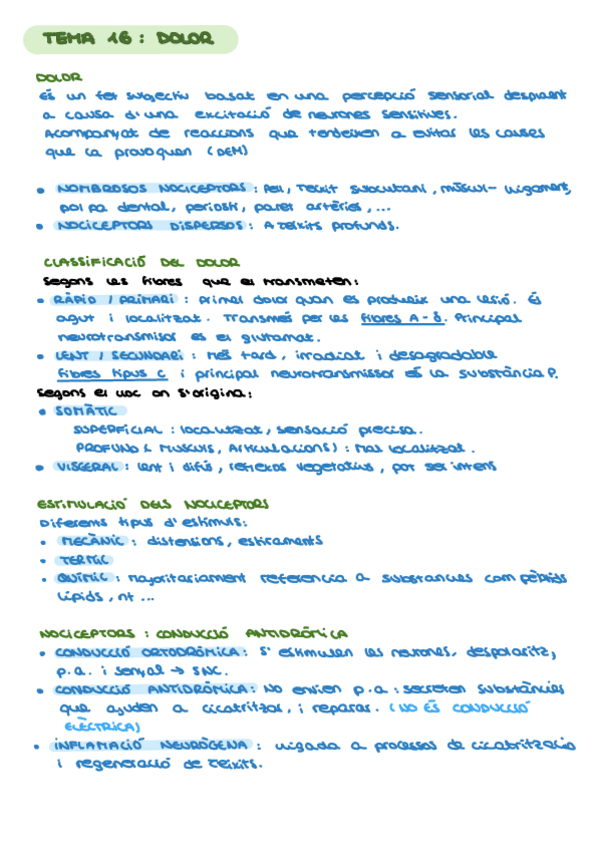 TEMA 16: DOLOR
DOLOR
És un fet subjectiu basat en una percepció sensorial desplaent
a causa d'una excitació de neurones sensitives.
Acompanyat de reaccions que tendeixen a evitar les causes
que la provoquen (DEM)
• NOMBROSOS NOCICEPTORS: Pell, Teixit subcutani, múscul-lligament,
polpa dental, periosti, paret artèries, ...
• NOCICEPTORS DISPERSOS: A teixits profunds.
CLASSIFICACIÓ DEL DOLOR
Segons les fibres que el transmeten:
• RÀPID / PRIMARI: Primer dolor quan es produeix una lesió. És
agut i localitzat. Transmès per les fibres A-δ. Principal
neurotransmisor és el glutamat.
• LENT / SECUNDARI: Més tard, irradiat i desagradable
Fibres tipus C i principal neurotransmissor és la substància P.
Segons el lloc on s'origina:
• SOMÀTIC
SUPERFICIAL: localitzat, sensació precisa.
PROFUND (Musculs, Articulacions): Mal localitzat.
• VISCERAL: lent i difús, reflexos vegetatius, pot ser intens
ESTIMULACIÓ DELS NOCICEPTORS
Diferents tipus d'estímuls:
• MECÀNIC: distensions, estiraments
• TÈRMIC
• QUÍMIC: Majoritariament referencia a substancies com pèptids
lípids, nt ...
NOCICEPTORS: CONDUCCIÓ ANTIDRÒMICA
• CONDUCCIÓ ORTODRÒMICA: S'estimulen les neurones, despolaritz,
p.a. i senyal → SNC.
• CONDUCCIÓ ANTIDRÒMICA: No envien p.a: secreten substàncies
que ajuden a cicatritzar, i reparar. (NO ÉS CONDUCCIÓ
ELÈCTRICA)
• INFLAMACIÓ NEURÒGENA: lligada a processos de cicatrització
i regeneració de teixits.